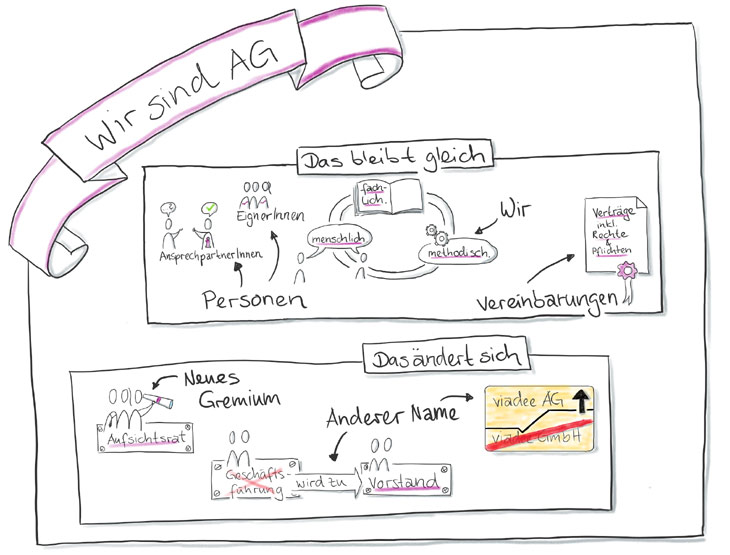 Wir sind AG
Das bleibt gleich
AnsprechpartnerInnen
EignerInnen
Personen
fach-
lich.
menschlich
methodisch.
Wir
Verträge
inkl.
Rechte
&
Pflichten
Vereinbarungen
Das ändert sich
Neues
Gremium
Aufsichtsrat
Anderer Name
Geschäfts-
führung
wird zu
Vorstand
viadee AG
viadee GmbH